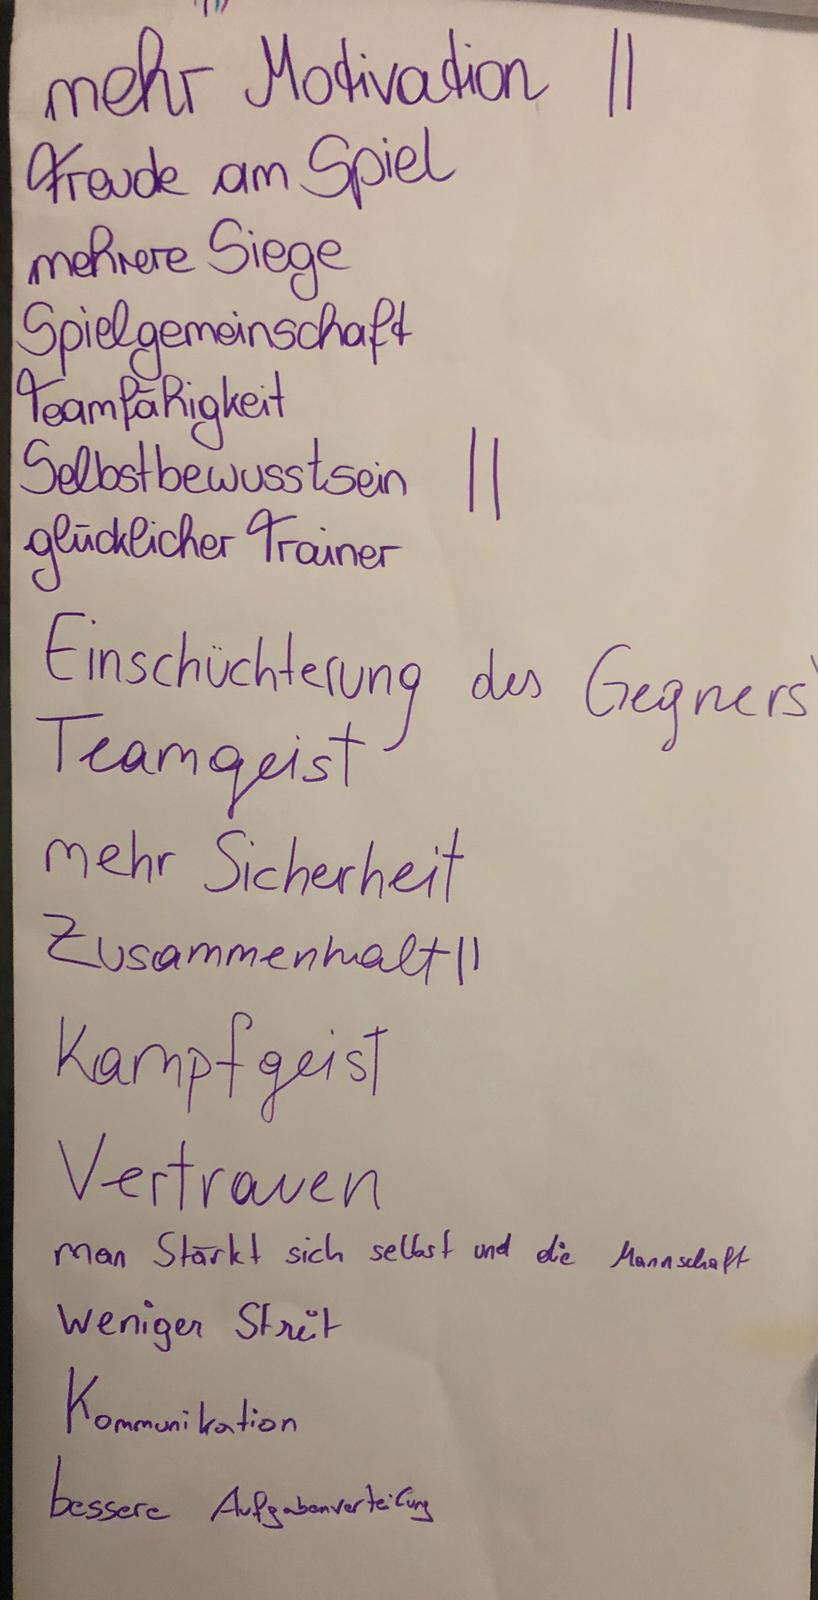 mehr Motivation ||
Freude am Spiel
mehrere Siege
Spielgemeinschaft
Teamfähigkeit
Selbstbewusstsein ||
glücklicher Trainer
Einschüchterung des Gegners
Teamgeist
mehr Sicherheit
Zusammenhalt ||
Kampfgeist
Vertrauen
man Stärkt sich selbst und die Mannschaft
weniger Streit
Kommunikation
bessere Aufgabenverteilung